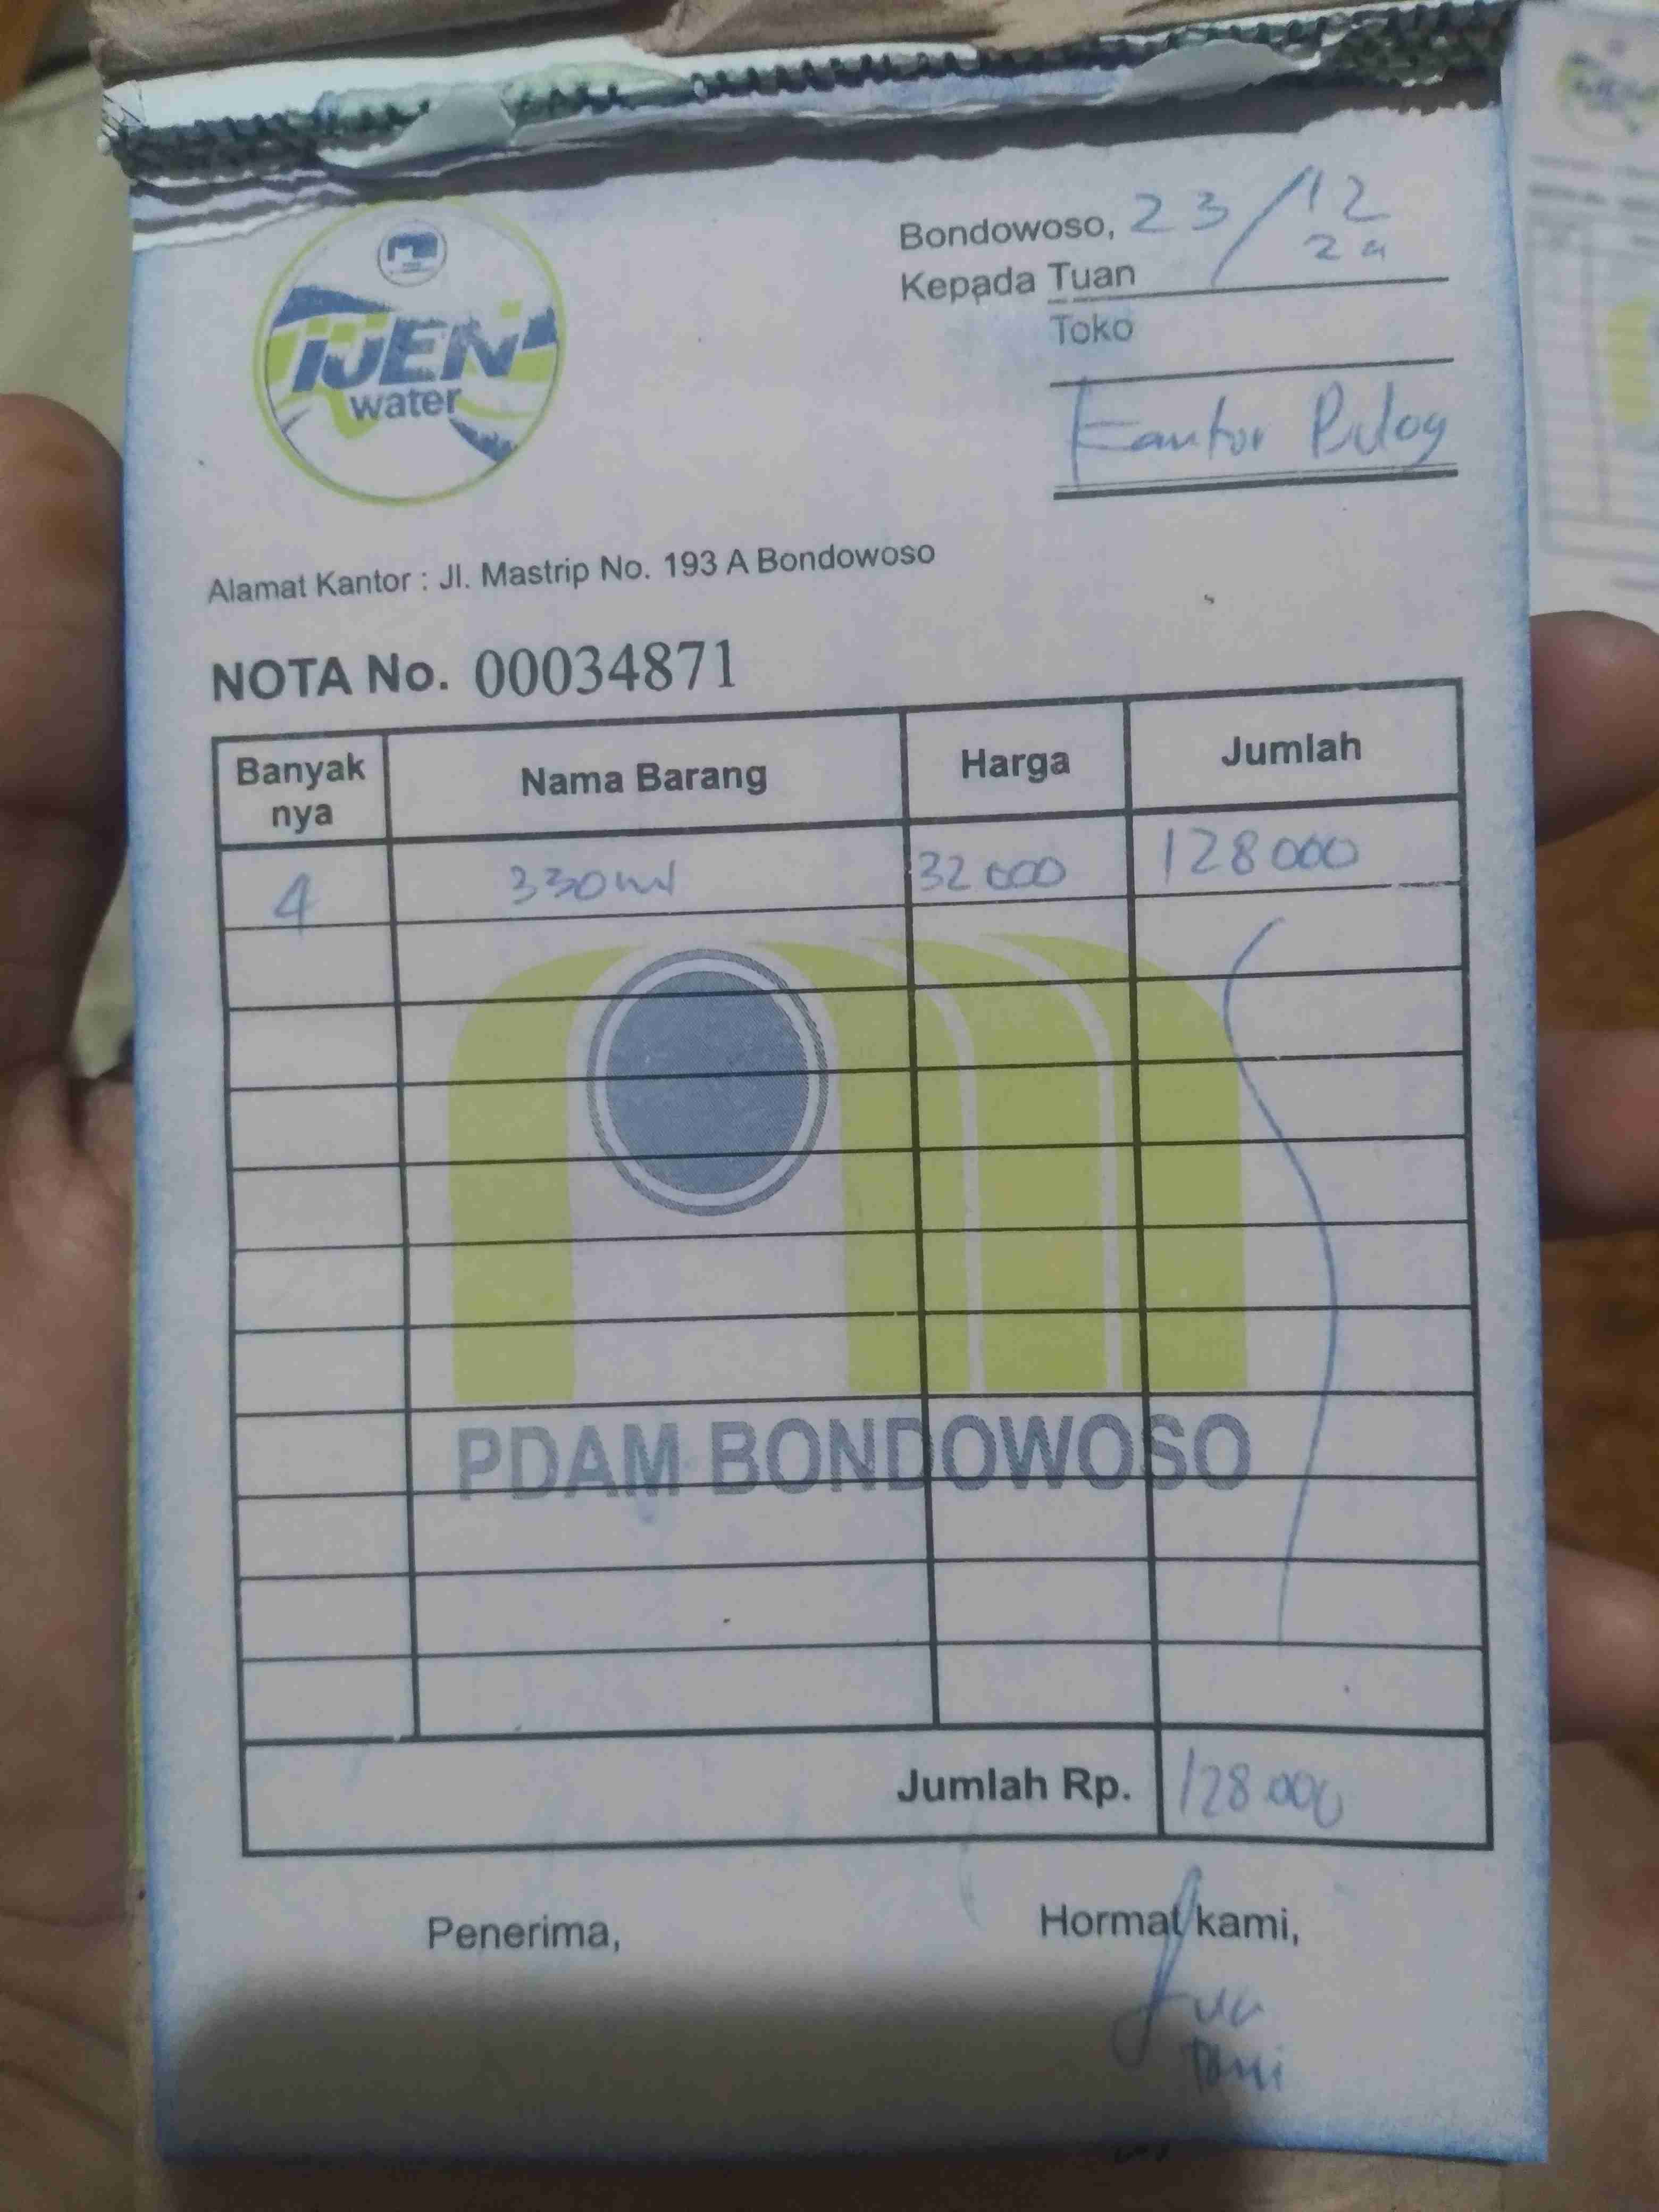 IJEN
water
Bondowoso, 23/12
24
Kepada Tuan
Toko
Kantor Bulog
Alamat Kantor : Jl. Mastrip No. 193 A Bondowoso
NOTA No. 00034871
Banyak nya Nama Barang Harga Jumlah
4 330 ml 32 000 128 000
PDAM BONDOWOSO
Jumlah Rp. 128.000
Penerima, Hormat kami,